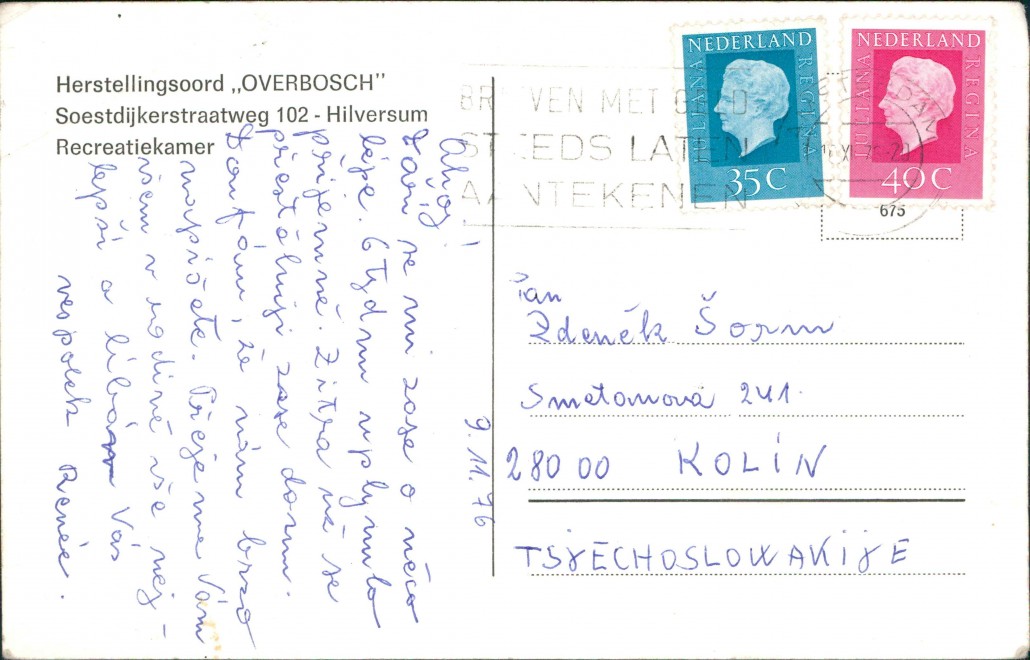 Herstellingsoord „OVERBOSCH”
Soestdijkerstraatweg 102 - Hilversum
Recreatiekamer
Ahoj!
Daří se mi zase o něco
lépe. 6 týdnů uplynulo
příjemně. Zítra už se
přestěhuji zase domu.
Doufám, že nám brzo
napíšete. Přejeme Vám
všem v rodině vše nej-
lepší a líbám Vás
vespolek Renée.
9.11.76
BRIEVEN MET GELD
STEEDS LATEN
AANTEKENEN
NEDERLAND
JULIANA REGINA
35 C
NEDERLAND
JULIANA REGINA
40 C
675
Pan
Zdeněk Šorm
Smetanova 241.
280 00 KOLÍN
TSJECHOSLOWAKIJE